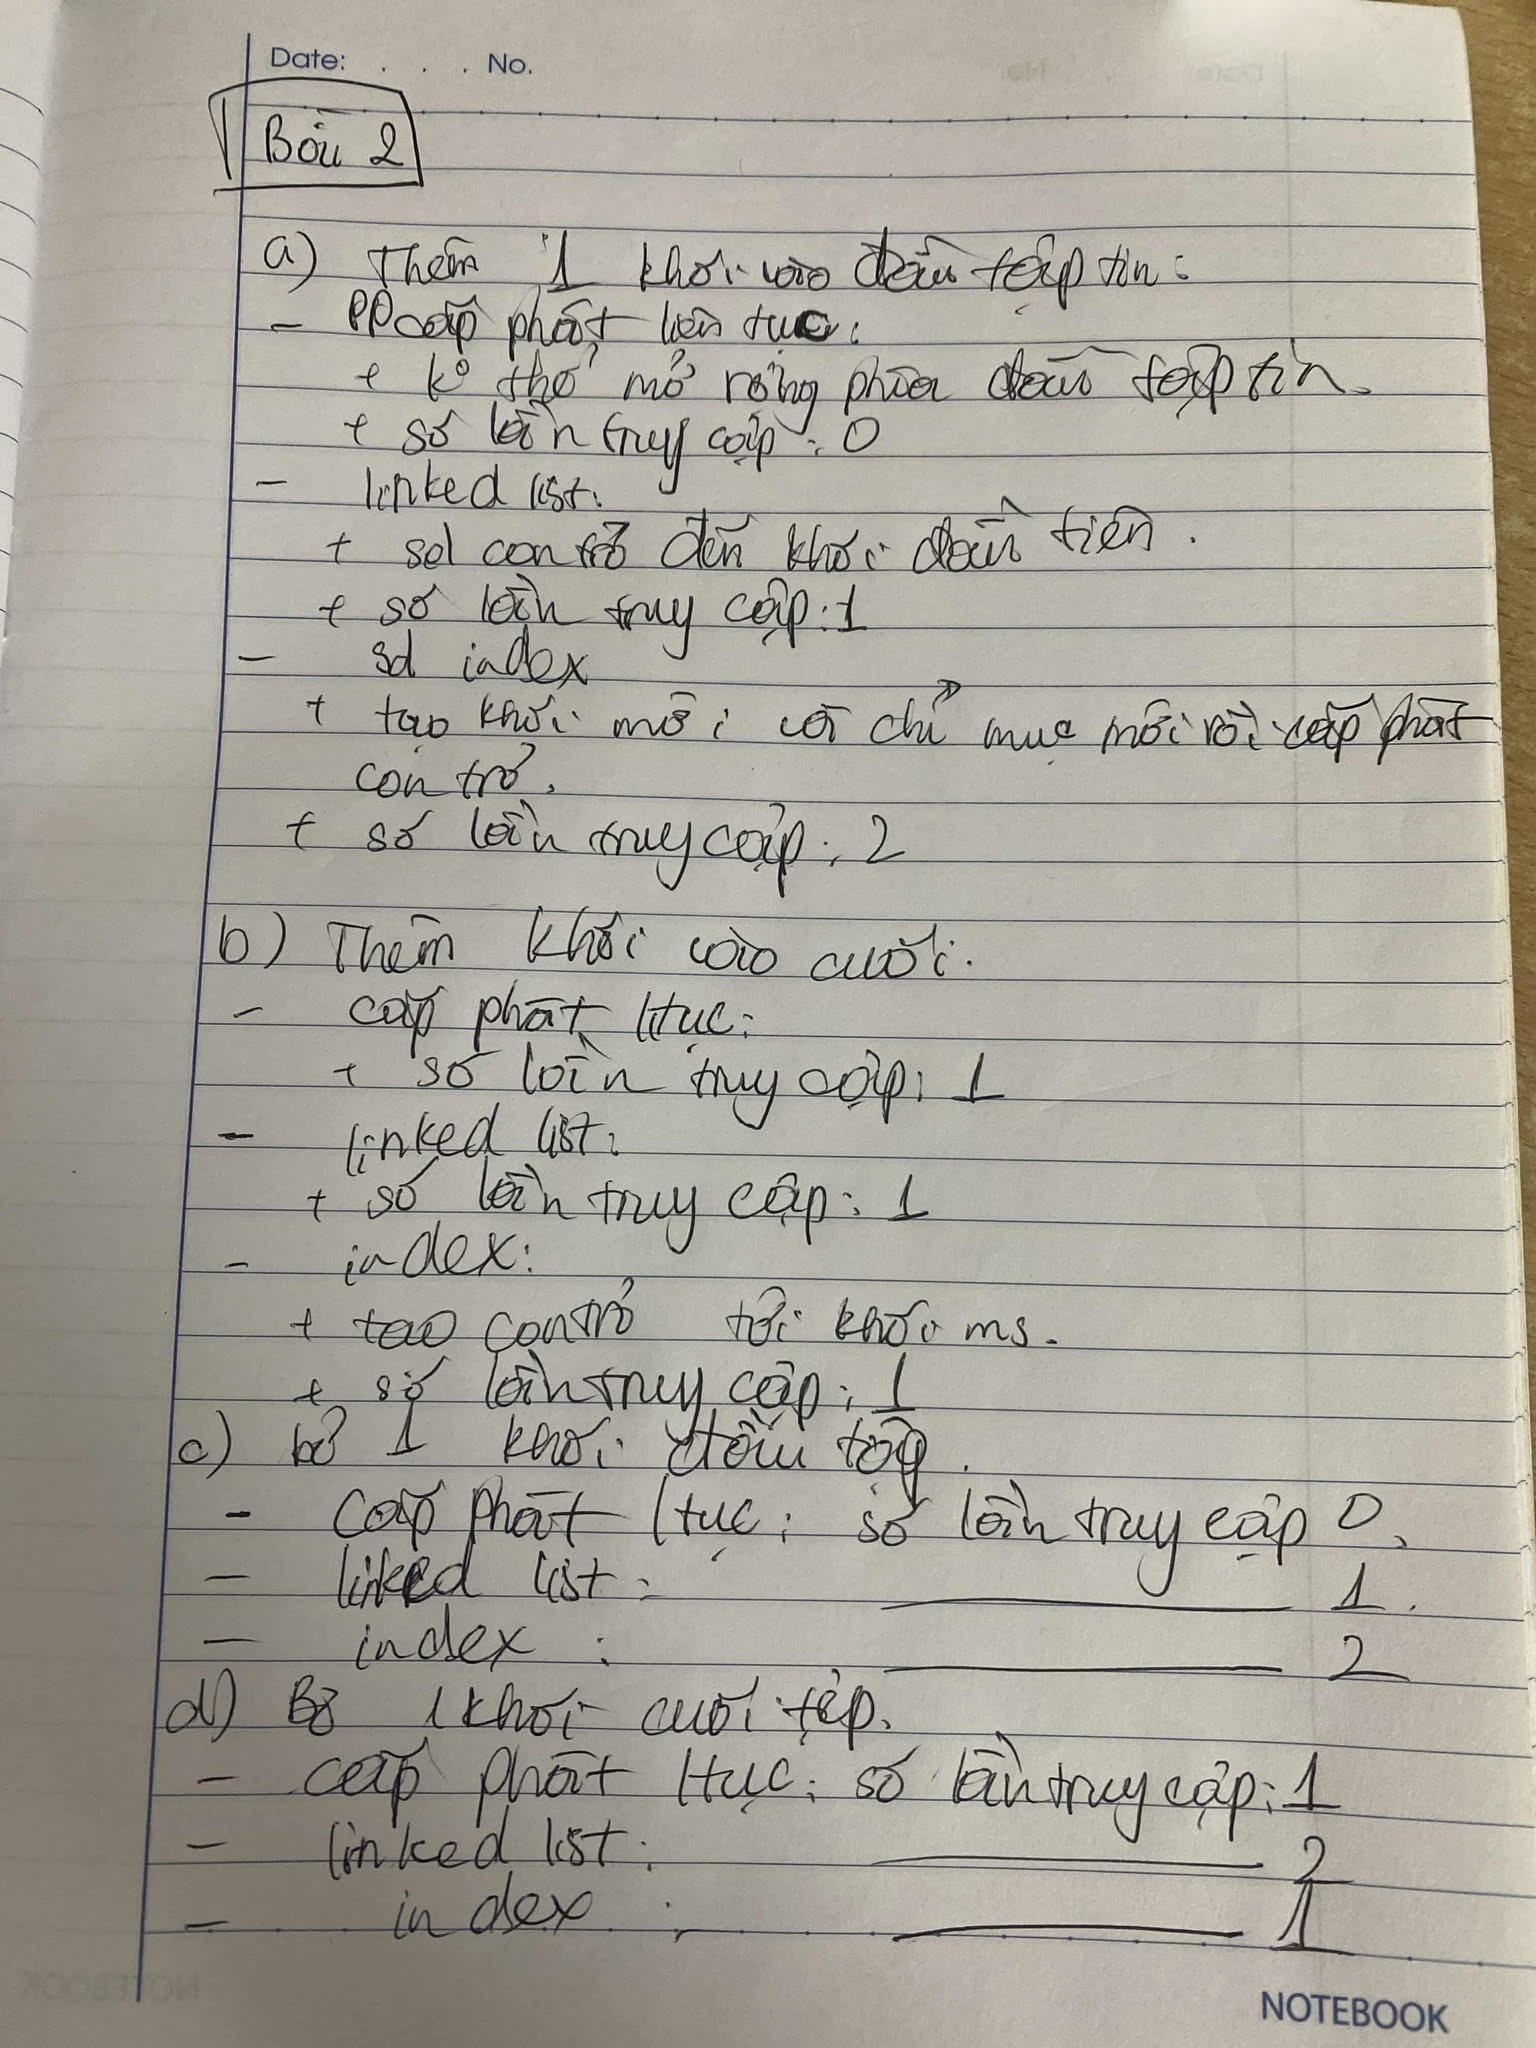 Date: . . . No.
Bài 2
a) Thêm 1 khối vào đầu tập tin:
- PP cấp phát liên tục:
+ ko thể mở rộng phía đầu tập tin.
+ số lần truy cập: 0
- linked list:
+ sd con trỏ đến khối đầu tiên.
+ số lần truy cập: 1
- sd index
+ tạo khối mới và chỉ mục mới rồi cấp phát
con trỏ.
+ số lần truy cập: 2
b) Thêm khối vào cuối.
- cấp phát ltục:
+ số lần truy cập: 1
- linked list:
+ số lần truy cập: 1
- index:
+ tạo con trỏ tới khối ms.
+ số lần truy cập: 1
c) bỏ 1 khối đầu tập.
- Cấp phát ltục: số lần truy cập 0.
- linked list: 1.
- index: 2
d) Bỏ 1 khối cuối tệp.
- cấp phát ltục: số lần truy cập: 1
- linked list: 2
- index: 1
NOTEBOOK